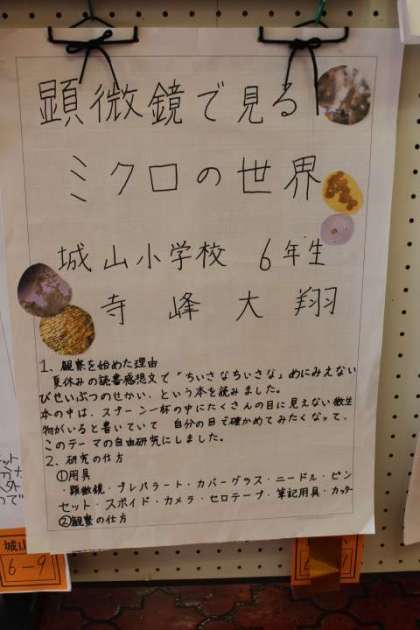 顕微鏡で見る
ミクロの世界
城山小学校 6年生
寺峰大翔
1. 観察を始めた理由
夏休みの読書感想文で「ちいさなちいさな」めにみえない
びせいぶつのせかい、という本を読みました。
本の中は、スプーン一杯の中にたくさんの目に見えない微生
物がいると書いていて 自分の目で確かめてみたくなって、
このテーマの自由研究にしました。
2. 研究の仕方
①用具
・顕微鏡・プレパラート・カバーグラス・ニードル・ピン
セット・スポイド・カメラ・セロテープ・筆記用具・カッター
②観察の仕方
城山
6-9